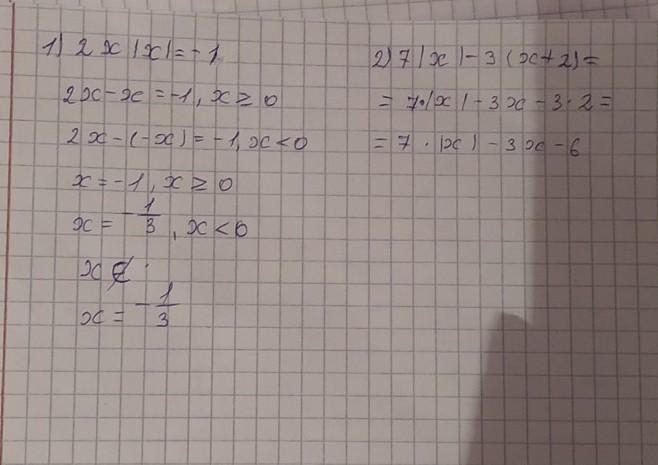 1) 2x|x|=-1
2x-x=-1, x≥0
2x-(-x)=-1, x<0
x=-1, x≥0
x=-1/3, x<0
x∉
x=-1/3
2) 7|x|-3(x+2)=
=7·|x|-3x-3·2=
=7·|x|-3x-6